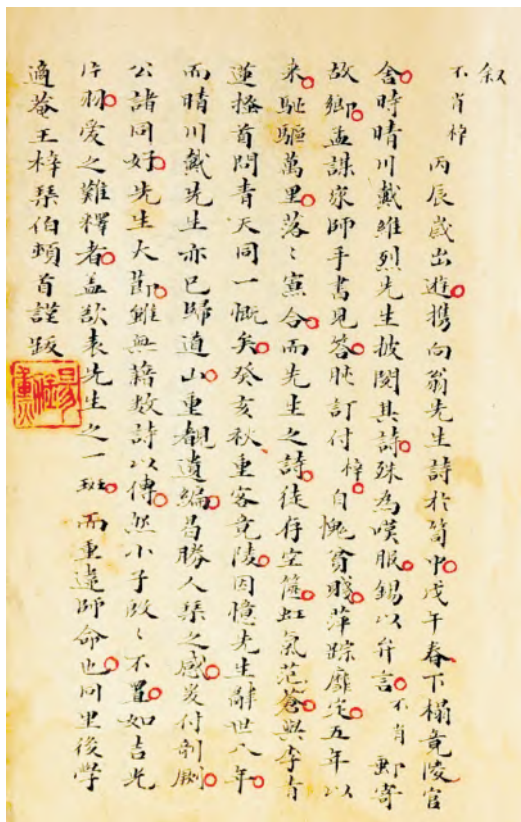 叙
不肖梓丙辰歲出遊携向翁先生詩於笥中戊午春下榻竟陵官
舍時晴川戴維烈先生披閱其詩殊為嘆服錫以弁言不肖郵寄
故鄉孟謀家師手書見答即訂付梓自愧貧賤萍踪靡定五年以
来馳驅萬里落〻寡合而先生之詩徒存空篋虹氣茫蒼與李青
蓮搔首問青天同一慨矣癸亥秋重客竟陵因憶先生辭世八年
而晴川戴先生亦已歸道山重覩遺編曷勝人琴之感爰付剞劂
公諸同好先生大節雖無藉数詩以傳然小子眷〻不置如吉光
片羽愛之難釋者盖欲表先生之一斑而重違師命也同里後學
適菴王梓琴伯頓首謹跋